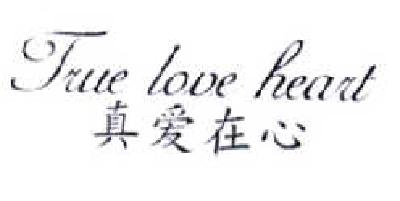 True love heart
真爱在心